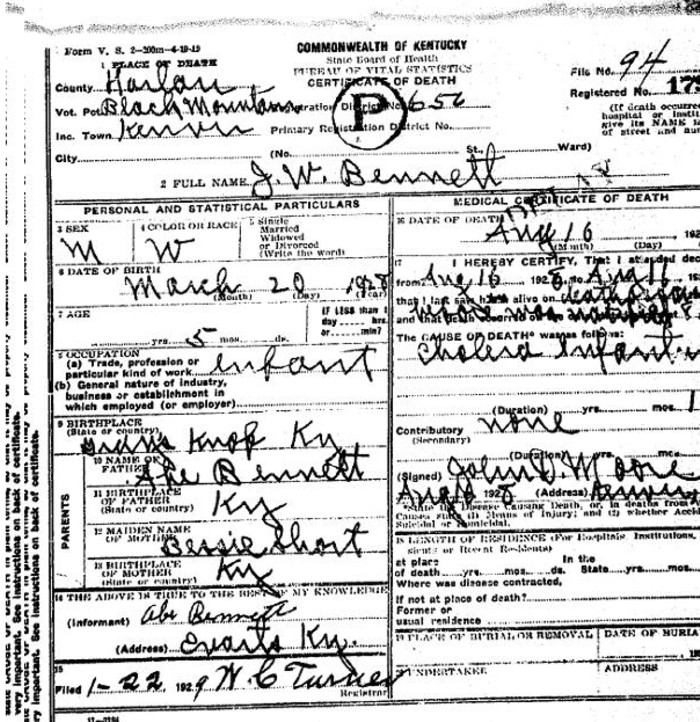 Form V. S. 2-200m-4-19-19
1 PLACE OF DEATH
COMMONWEALTH OF KENTUCKY
State Board of Health
BUREAU OF VITAL STATISTICS
CERTIFICATE OF DEATH
File No. 94
Registered No. 179
County Harlan
Vot. Pct. Black Mountain
Registration District No. 652
P
Inc. Town Kenvir
Primary Registration District No.
(If death occurred
hospital or instit
give its NAME
of street and
City
(No. St., Ward)
2 FULL NAME J. W. Bennett
PERSONAL AND STATISTICAL PARTICULARS
3 SEX
M
4 COLOR OR RACE
W
5 Single
Married
Widowed
or Divorced
(Write the word)
6 DATE OF BIRTH
March 20 1928
(Month) (Day) (Year)
7 AGE
IF LESS than 1
day hrs.
or min?
yrs. 5 mos. ds.
8 OCCUPATION
(a) Trade, profession or
particular kind of work infant
(b) General nature of industry,
business or establishment in
which employed (or employer)
9 BIRTHPLACE
(State or country)
Knop Ky
PARENTS
10 NAME OF
FATHER Abe Bennett
11 BIRTHPLACE
OF FATHER
(State or country) Ky
12 MAIDEN NAME
OF MOTHER Bessie Short
13 BIRTHPLACE
OF MOTHER
(State or country) Ky
14 THE ABOVE IS TRUE TO THE BEST OF MY KNOWLEDGE
(Informant) Abe Bennett
(Address) Evarts Ky.
15
Filed 1-22, 1929 W C Turner
Registrar
MEDICAL CERTIFICATE OF DEATH
16 DATE OF DEATH
Aug 16 192
(Month) (Day)
17 I HEREBY CERTIFY, That I attended dec
from Aug 16 1928, to Aug 16
that I last saw h alive on
and that death occurred
The CAUSE OF DEATH* was as follows:
Cholera Infantum
(Duration) yrs. mos. 1
Contributory none
(Secondary)
(Duration) yrs. mos.
(Signed) John D. Moore
Aug 1928 (Address) Kenvir
*State the Disease Causing Death, or, in deaths from
Causes, state (1) Means of Injury; and (2) whether Accid
Suicidal or Homicidal.
18 LENGTH OF RESIDENCE (For Hospitals, Institutions,
sients or Recent Residents)
At place
of death yrs. mos. ds.
In the
State yrs. mos.
Where was disease contracted,
If not at place of death?
Former or
usual residence
19 PLACE OF BURIAL OR REMOVAL
DATE OF BURIA
192
UNDERTAKER
ADDRESS
very important. See instructions on back of certificate.